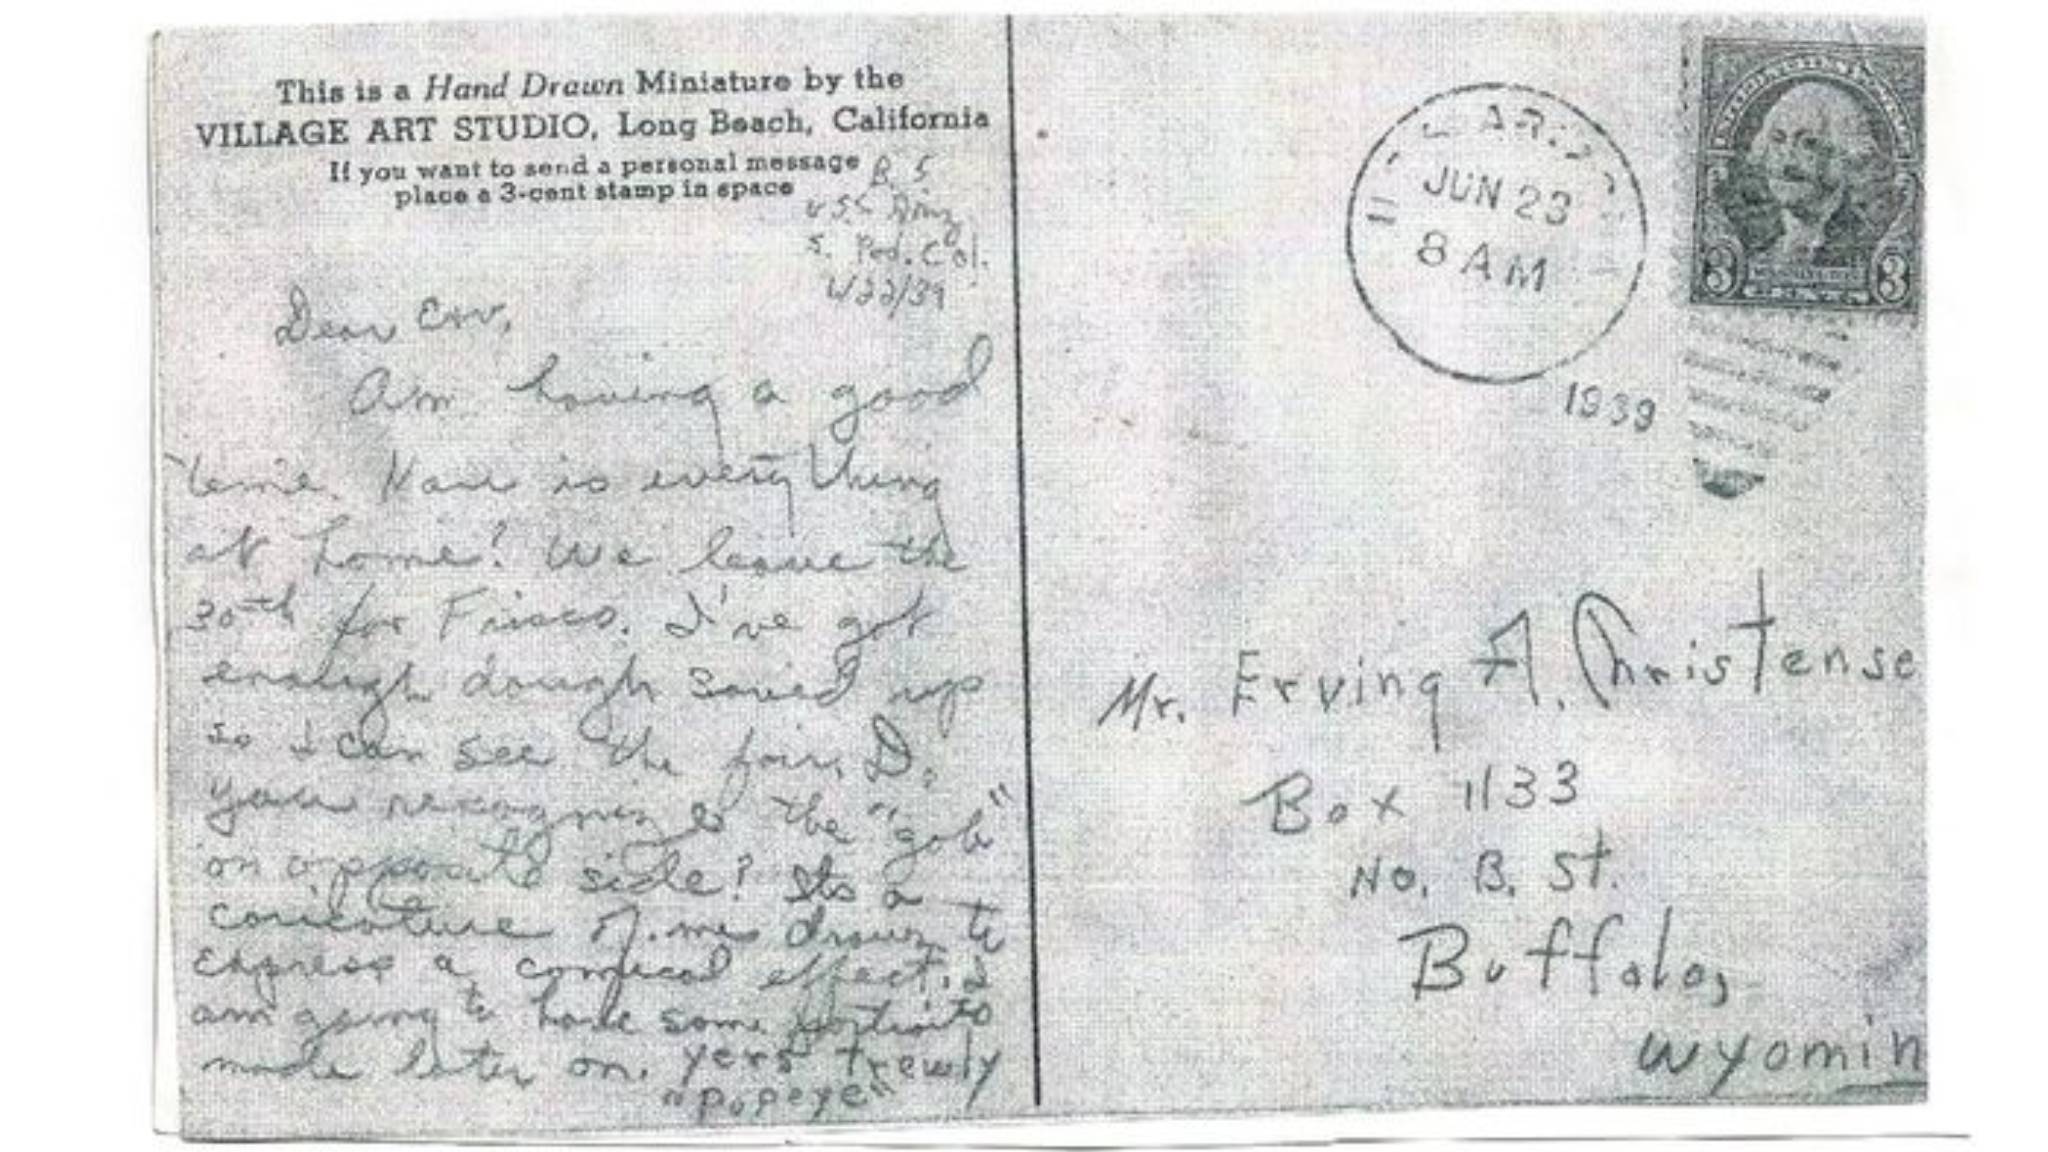 This is a Hand Drawn Miniature by the
VILLAGE ART STUDIO, Long Beach, California
If you want to send a personal message
place a 3-cent stamp in space
B. 5
U.S.S. Ariz
S. Ped. Cal.
6/22/39
Dear Erv,
Am having a good
time. How is everything
at home? We leave the
30th for Frisco. I've got
enough dough saved up
so I can see the fair. Do
you recognize the "gob"
on opposite side? Its a
caricature of me drawn to
express a comical effect. I
am going to have some portraits
made later on. yers trewly
"popeye"
JUN 23
8 AM
1939
3 3
Mr. Erving A. Christense
Box 1133
No. B. St.
Buffalo,
Wyomin